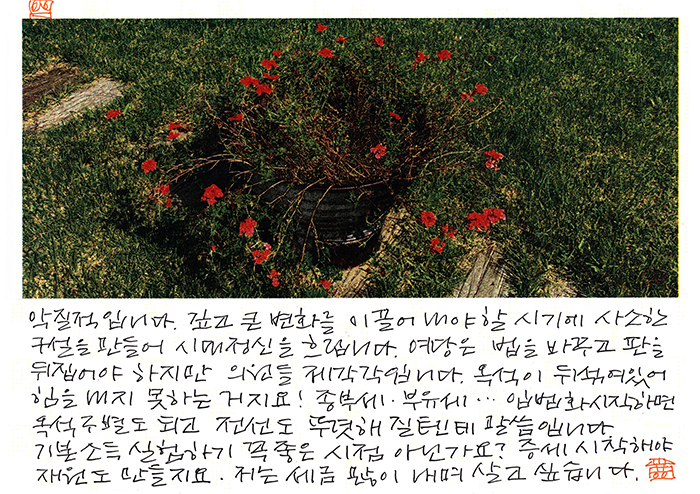 악질적입니다. 깊고 큰 변화를 이끌어 내야 할 시기에 사소한
구설을 만들어 시대정신을 흐립니다. 여당은 법을 바꾸고 판을
뒤집어야 하지만 의원들 제각각입니다. 옥석이 뒤섞여있어
힘을 내지 못하는 거지요! 종부세·부유세··· 입법화 시작하면
옥석 구별도 되고 전선도 뚜렷해 질텐데 말씀입니다
기본소득 실험하기 꼭 좋은 시점 아닌가요? 증세 시작해야
재원도 만들지요. 저는 세금 많이 내며 살고 싶습니다.